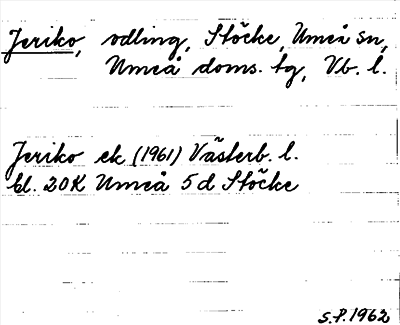 Jeriko, odling, Stöcke, Umeå sn,
Umeå doms. tg, Vb. l.
Jeriko ek (1961) Västerb. l.
bl. 20K Umeå 5d Stöcke
S.P. 1962